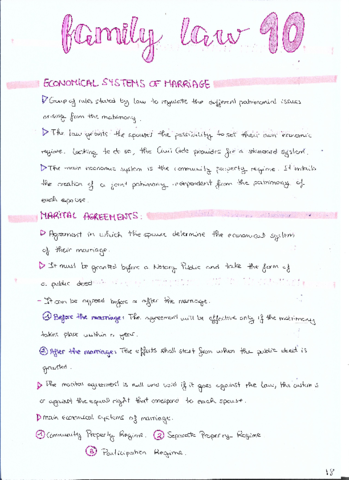 family law 10
ECONOMICAL SYSTEMS OF MARRIAGE
▷ Group of rules stated by law to regulate the different patrimonial issues
arising from the matrimony.
▷ The law grants the spouses the possibility to set their own economic
regime. Lacking to do so, the Civil Code provides for a standard system.
▷ The main economic system is the community property regime. It entails
the creation of a joint patrimony independent from the patrimony of
each spouse.
MARITAL AGREEMENTS:
▷ Agreement in which the spouses determine the economical system
of their marriage.
▷ It must be granted before a Notary Public and take the form of
a public deed
- It can be agreed before or after the marriage.
① Before the marriage: The agreement will be effective only if the matrimony
takes place within a year.
② After the marriage: The effects shall start from when the public deed is
granted.
▷ The marital agreement is null and void if it goes against the law, the customs
or against the equal right that correspond to each spouse.
▷ Main economical systems of marriage.
① Community Property Regime. ② Separate Property Regime
③ Participation Regime.